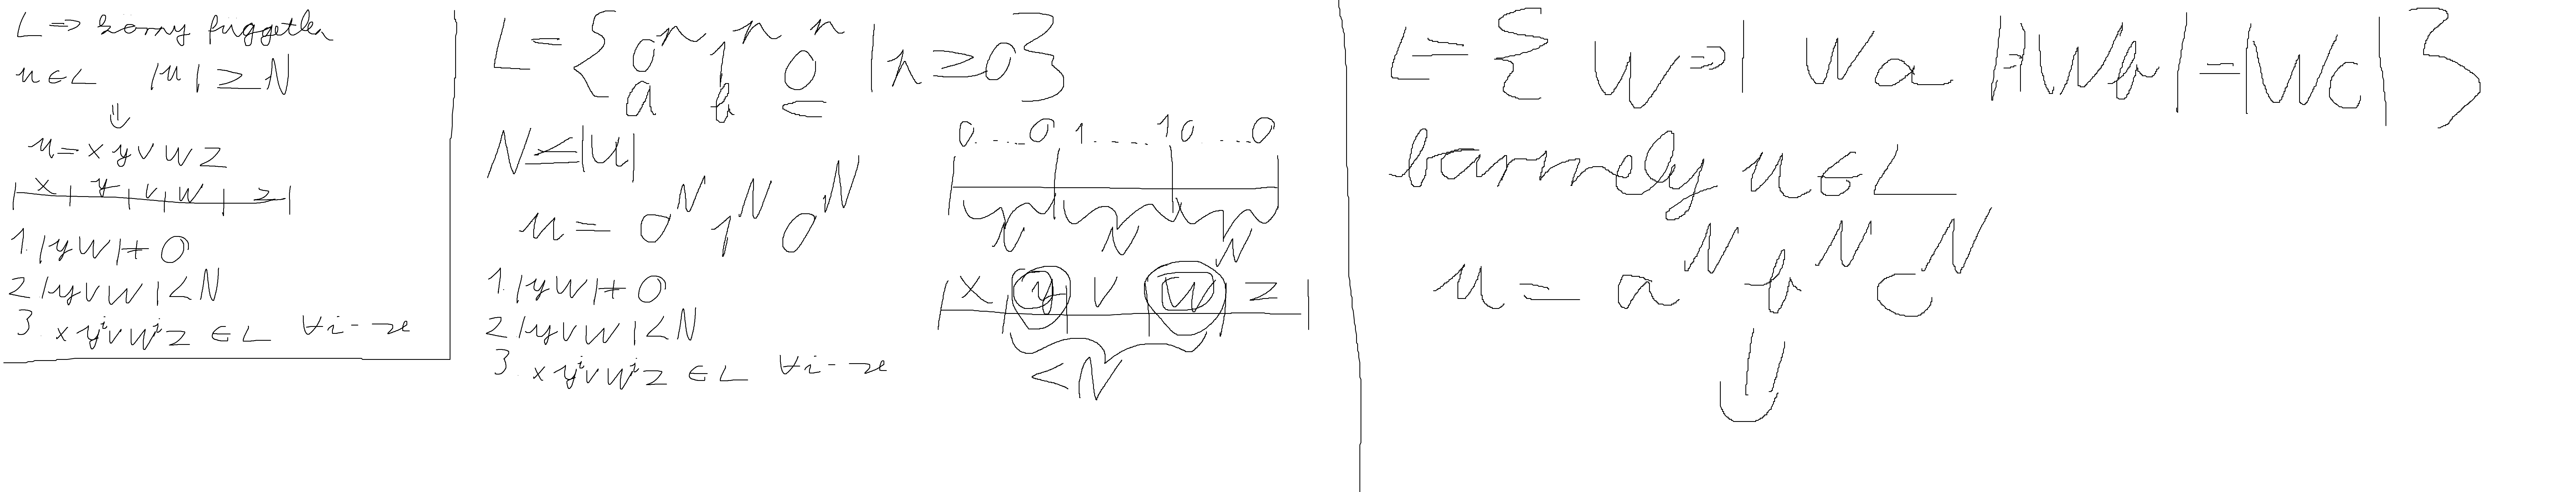 L => környfüggetlen
u∈L |u| ≥ N
⇓
u = x y v w z
x y v w z
1. |yw| ≠ 0
2 |yvw| < N
3. x yⁱ v wⁱ z ∈ L ∀i-re
L = { 0ⁿ 1ⁿ 0ⁿ | n ≥ 0 }
a b c
N ≤ |u|
u = 0ᴺ 1ᴺ 0ᴺ
1. |yw| ≠ 0
2 |yvw| < N
3. x yⁱ v wⁱ z ∈ L ∀i-re
0....0 1.....1 0...0
N N N
x y v w z
< N
L = { W => | Wa |=| Wb | = | Wc | }
barmely u∈L
u = aᴺ bᴺ cᴺ
⇓